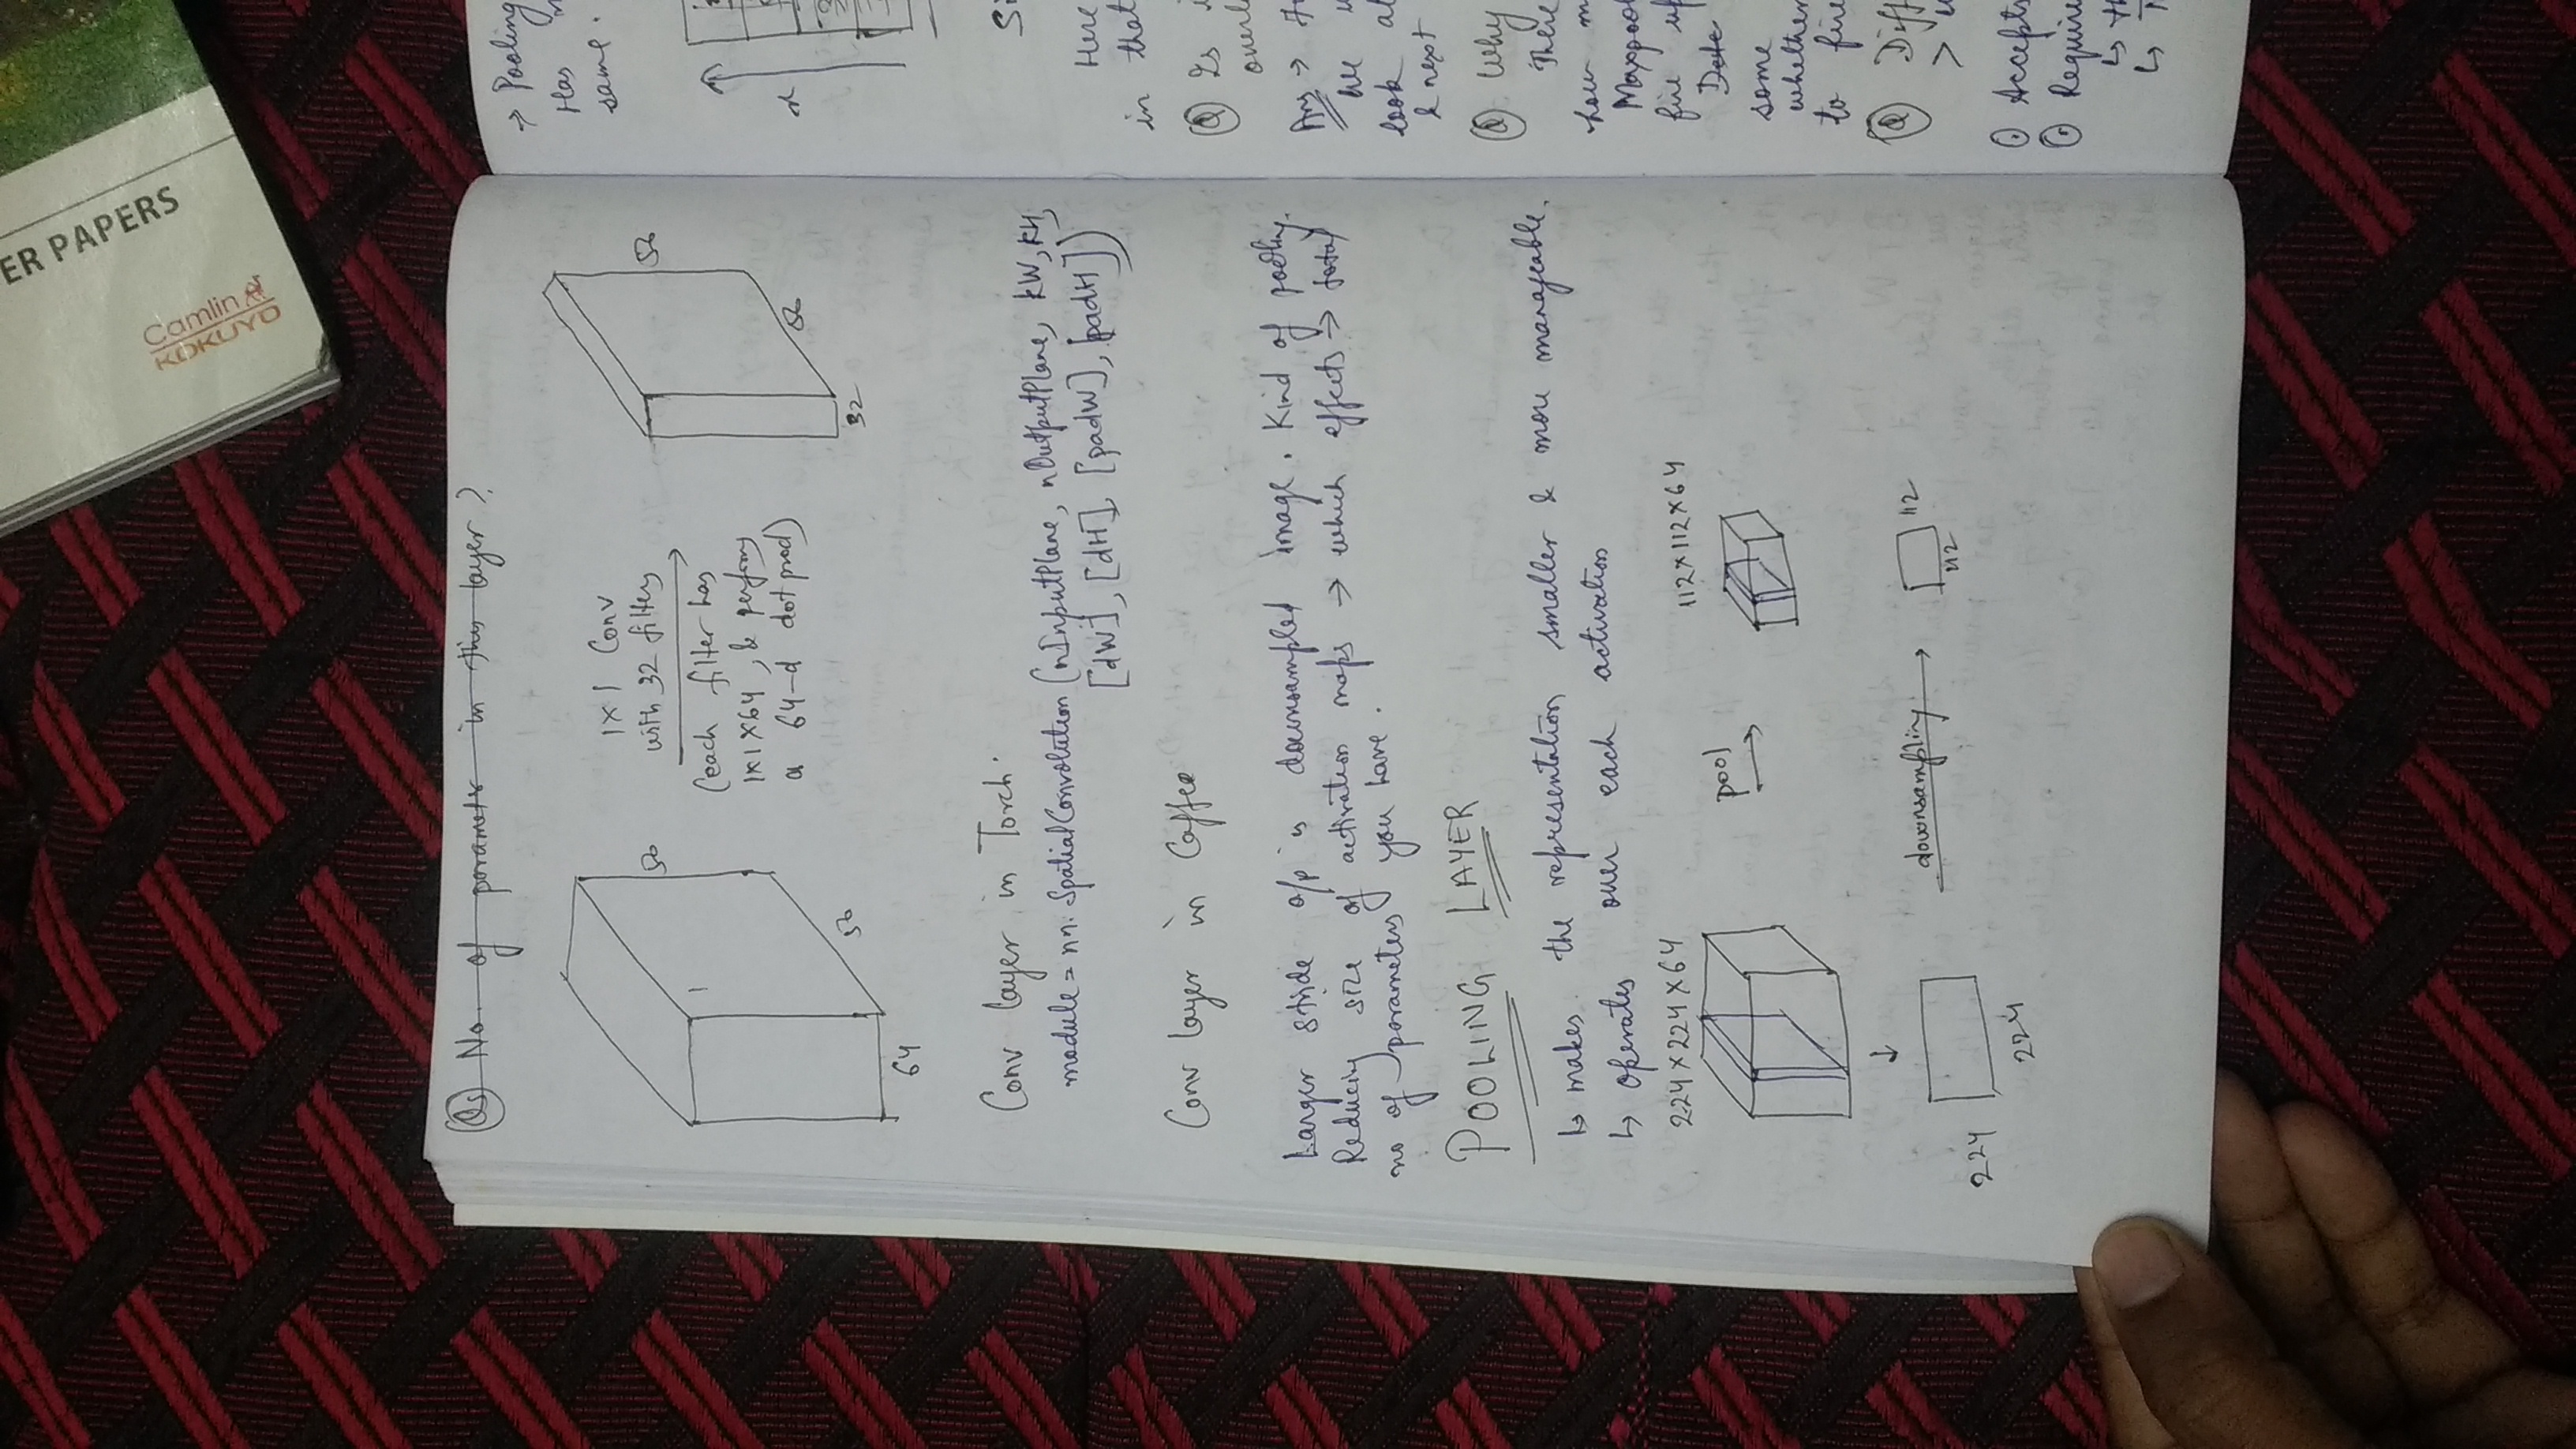 Q) No. of parametr in this layer?
1×1 Conv
with 32 filters
(each filter has
1×1×64, & performs
a 64-d dot prod)
50
50
64
50
50
32
Conv layer in Torch.
module = nn.SpatialConvolution (nInputPlane, nOutputPlane, kW, kH,
[dW], [dH], [padW], [padH])
Conv layer in Caffee
Larger stride o/p is downsampled image. Kind of pooling.
Reducing size of activation maps → which effects → total
no of parameters you have.
POOLING LAYER
↳ makes the representation smaller & more manageable.
↳ operates over each activation
224×224×64
pool
112×112×64
224
224
downsampling
112
112
→ Pooling
Has
same.
x
Here
in that
Q) Is
overl
Ans → 
we
look at
& next
Q) Why
There
how m
Maxpool
fire
some
whether
to fire
Q) Diff
>
Accepts
Require
↳ th
ER PAPERS
Camlin
KOKUYO